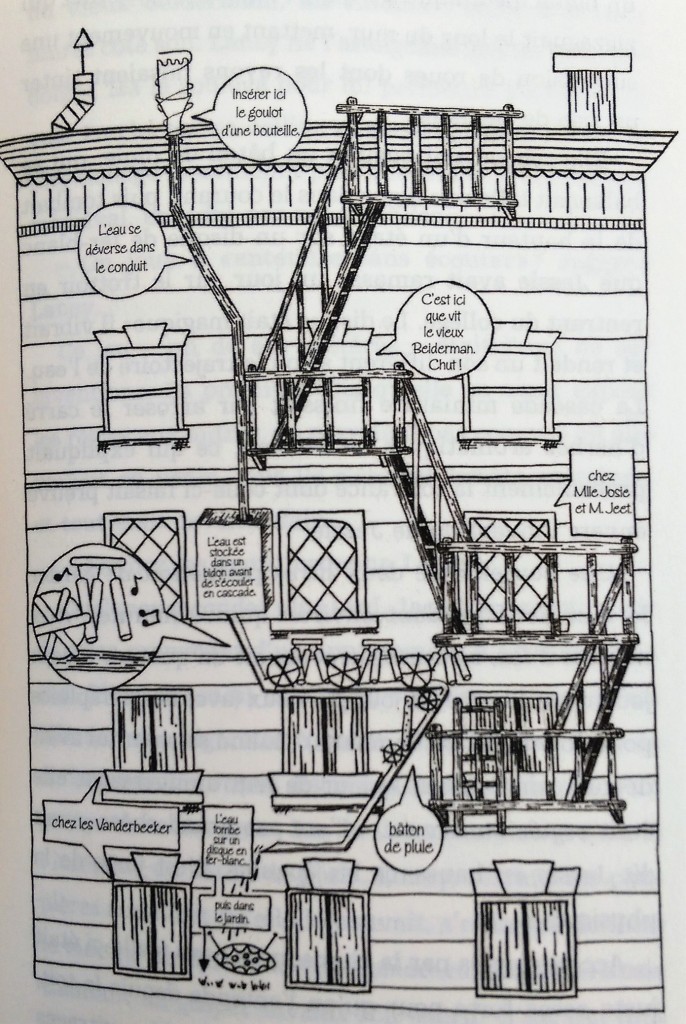 Insérer ici
le goulot
d'une bouteille.
L'eau se
déverse dans
le conduit.
C'est ici
que vit
le vieux
Beiderman.
Chut !
chez
Mlle Josie
et M. Jeet.
L'eau est
stockée
dans un
bidon avant
de s'écouler
en cascade.
chez les Vanderbeeker
L'eau
tombe
sur un
disque en
fer-blanc...
puis dans
le jardin.
bâton
de pluie